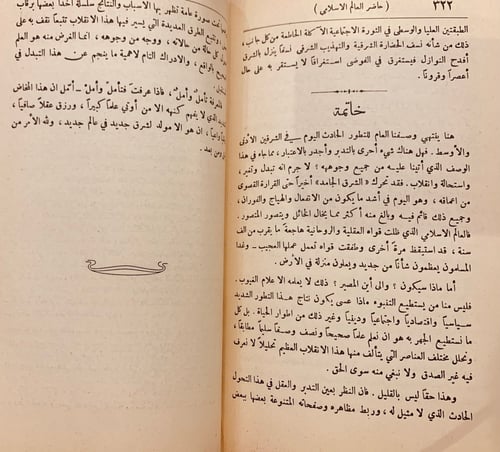 ٣٢٢ ( حاضر العالم الاسلامي )
الطبقتين العليا والوسطى في الثورة الاجتماعية الآكلة الحاطمة من كل جانب ،
ذلك من شأنه نسف الحضارة الشرقية والتهذيب الشرقي نسفاً ينزل بالشرق
أفدح النوازل فيستغرق في الفوضى استغراقاً لا يستقر به على حال
أعصراً وقروناً .
خاتمة
هنا ينتهي وصفنا العام للتطور الحادث اليوم في الشرقين الأدنى
والأوسط . فهل هناك شيء أحرى بالتدبر وأجدر بالاعتبار ، مما جاء في هذا
الوصف الذي أتينا عليه من جميع وجوهه ؟ لا جرم انه تبدل وتغير ،
واستحالة وانقلاب . فقد تحرك « الشرق الجامد » أخيراً حتى القرارة القصوى
من اعماقه ، وهو اليوم في أشد ما يكون من الانفعال والهياج والفوران ،
وجميع ذلك قائم فيه وبالغ منه أكثر مما يخال الخائل ويتصور المتصور .
فالعالم الاسلامي الذي ظلت قواه العقلية والروحانية هاجعة ما يقرب من الف
سنة ، قد استيقظ مرة أخرى وطفقت قواه تعمل عملها العجيب - وغدا
المسلمون يعظمون شأناً من جديد ويعلون منزلة في الأرض .
أما ماذا سيكون ؟ والى أين المصير ؟ ذلك لا يعلمه الا علام الغيوب .
فليس منا من يستطيع التفوه ماذا عسى يكون نتاج هذا التطور الشديد
سياسياً واقتصادياً واجتماعياً ودينياً وغير ذلك من اطوار الحياة . بل كل
ما نستطيع الجهر به هو ان نعلم علماً صحيحاً ونصف وصفاً سليماً مطابقاً ،
ونحلل مختلف العناصر التي يتألف منها هذا الانقلاب العظيم تحليلاً لا نعرف
فيه غير الصدق ولا نبغي منه سوى الحق .
وهذا حقاً ليس بالقليل . فان النظر بعين التدبر والعقل في هذا التحول
الحادث الذي لا مثيل له ، وربط مظاهره وصفحاته المتنوعة بعضها ببعض
صورة عامة تظهر بها الاسباب والنتائج آخذاً بعضها برقاب
الطرق العديدة التي يسير فيها هذا الانقلاب تتبعاً نقف به على
كل حالة من حالاته ، ووجه من وجوهه ، انما الغرض منه هو العلم
بالواقع ، والادراك التام لاهمية ما ينجم عن هذا التبدل في
تأمل وأمل ، فاذا عرفت فتأمل وأمل - أتمل ان هذا المخاض
الذي لا يفهم كنهه الا من أوتي علماً كبيراً ، ورزق عقلاً صافياً ،
ان هو الا مولد لشرق جديد في عالم جديد ، ولله الأمر من
ومن بعد .